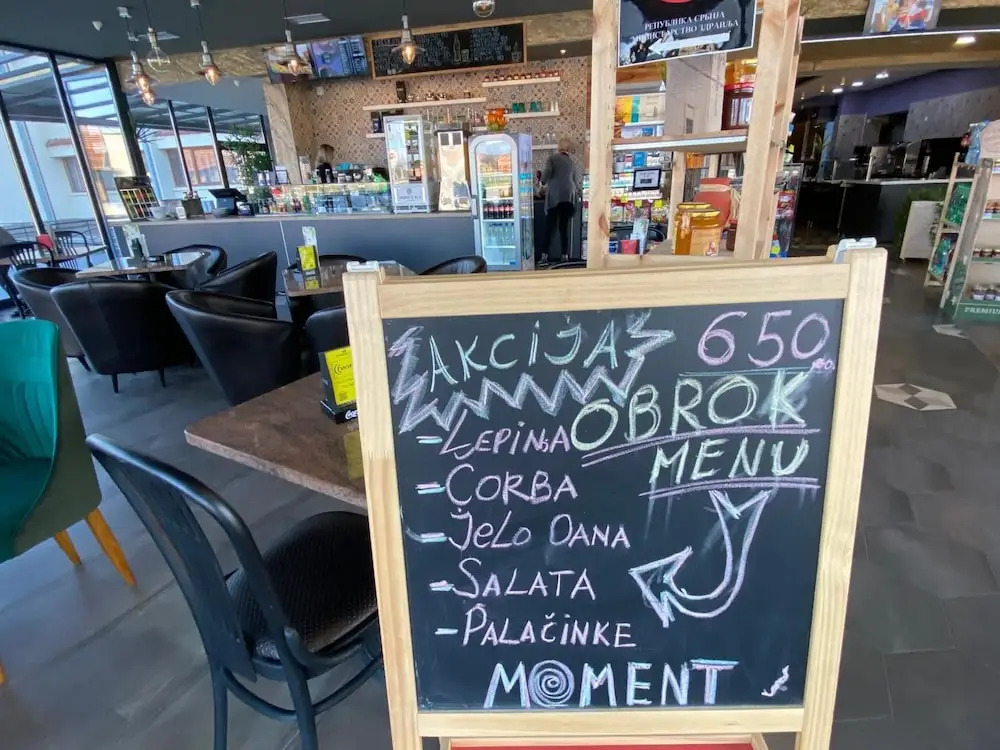 РЕПУБЛИКА СРБИЈА
МИНИСТАРСТВО ЗДРАВЉА
AKCIJA
650
OBROK
MENU
- LEPINJA
- ČORBA
- JELO DANA
- SALATA
- PALAČINKE
MOMENT
PREMIUM